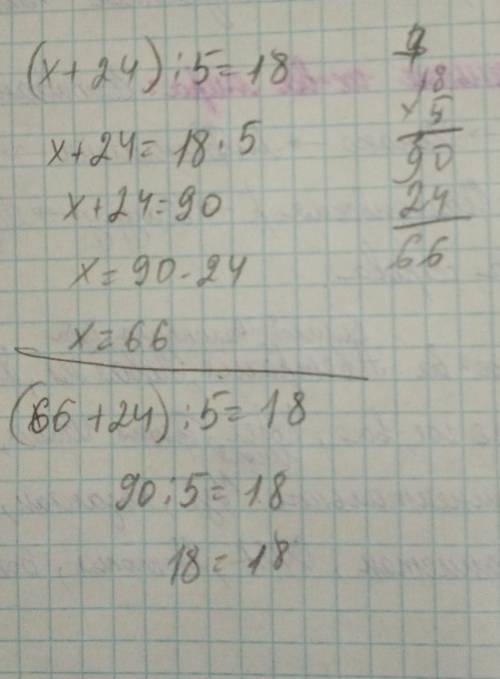 (x+24):5=18
x+24=18·5
x+24=90
x=90-24
x=66
(66+24):5=18
90:5=18
18=18
18
×5
90
24
66